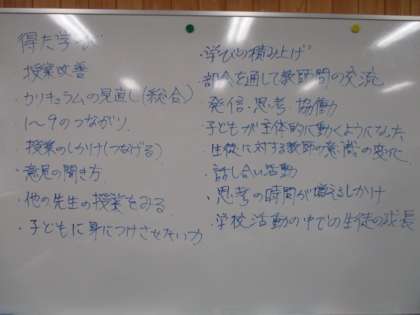 得た学び
授業改善
・カリキュラムの見直し(総合)
1~9のつながり
・授業のしかけ(つなげる)
・意見の聞き方
・他の先生の授業をみる
・子どもに身につけさせたい力
・学びの積み上げ
・部会を通して教師間の交流
・発信・思考・協働
子どもが主体的に動くようになった
・生徒に対する教師の意識の変化
・話し合い活動
・思考の時間が増えるしかけ
・学校活動の中での生徒の成長